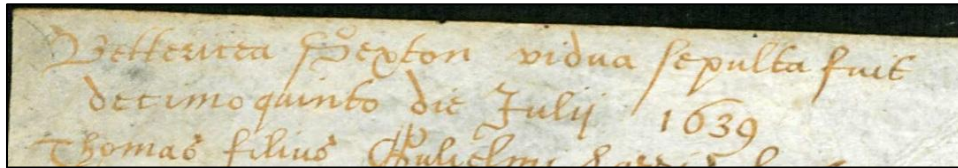 Bettericea Sexton vidua sepulta fuit
decimo quinto die Julij 1639
Thomas filius Gulielmi